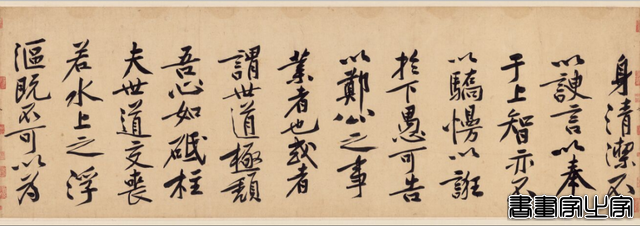 身清潔不
以諛言以奉
于上智亦不
以驕慢以誑
於下愚可告
以鄭公之事
業者也或者
謂世道極頹
吾心如砥柱
夫世道交喪
若水上之浮
漚既不可以為
書畫家之家